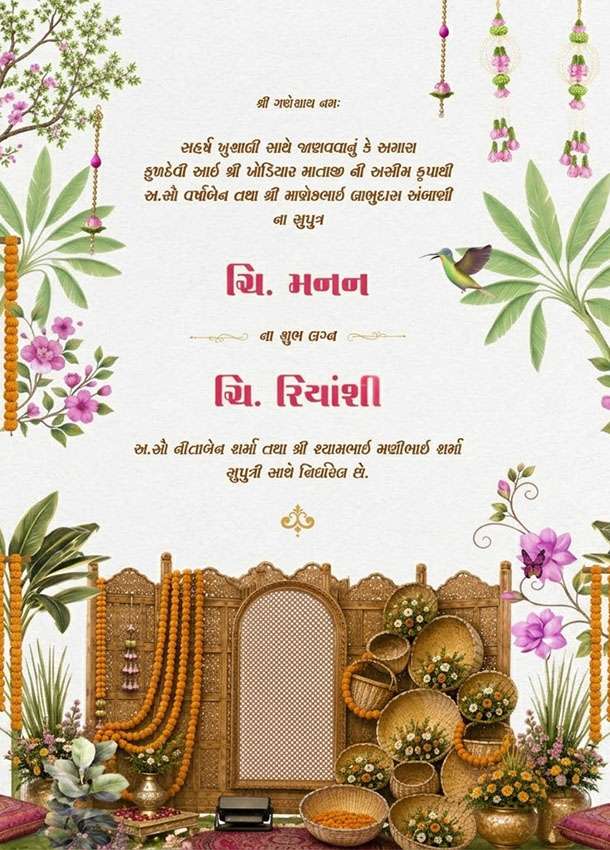 શ્રી ગણેશાય નમઃ
સહર્ષ ખુશાલી સાથે જાણવવાનું કે અમારા
કુળદેવી આઈ શ્રી ખોડિયાર માતાજી ની અસીમ કૃપાથી
અ.સૌ વર્ષાબેન તથા શ્રી માણેકભાઈ લાભુદાસ અંબાણી
ના સુપુત્ર
ચિ. મનન
ના શુભ લગ્ન
ચિ. રિયાંશી
અ.સૌ નીતાબેન શર્મા તથા શ્રી શ્યામભાઈ મણીભાઈ શર્મા
સુપુત્રી સાથે નિર્ધારેલ છે.